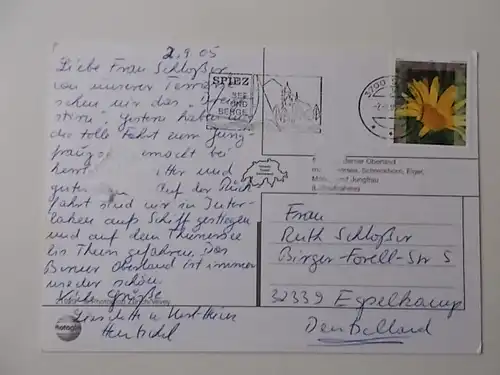 2.9.05
Liebe Frau Schloßer
von unserer Terrasse
sehen wir das
Gestern haben
die tolle Fahrt zum Jung-
gemacht bei
Wetter und
guter Auf der Rück
fahrt sind wir in Inter-
laken aufs Schiff gestiegen
und auf dem Thunersee
bis Thun gefahren. Das
Berner Oberland ist immer
wieder schön.
Viele Grüße
SPIEZ
SEE
UND
BERGE
3700
Berner Oberland
Schreckhorn, Eiger,
Mönch und Jungfrau
Frau
Ruth Schloßer
Birger-Forell-Str 5
32339 Espelkamp
Deutschland